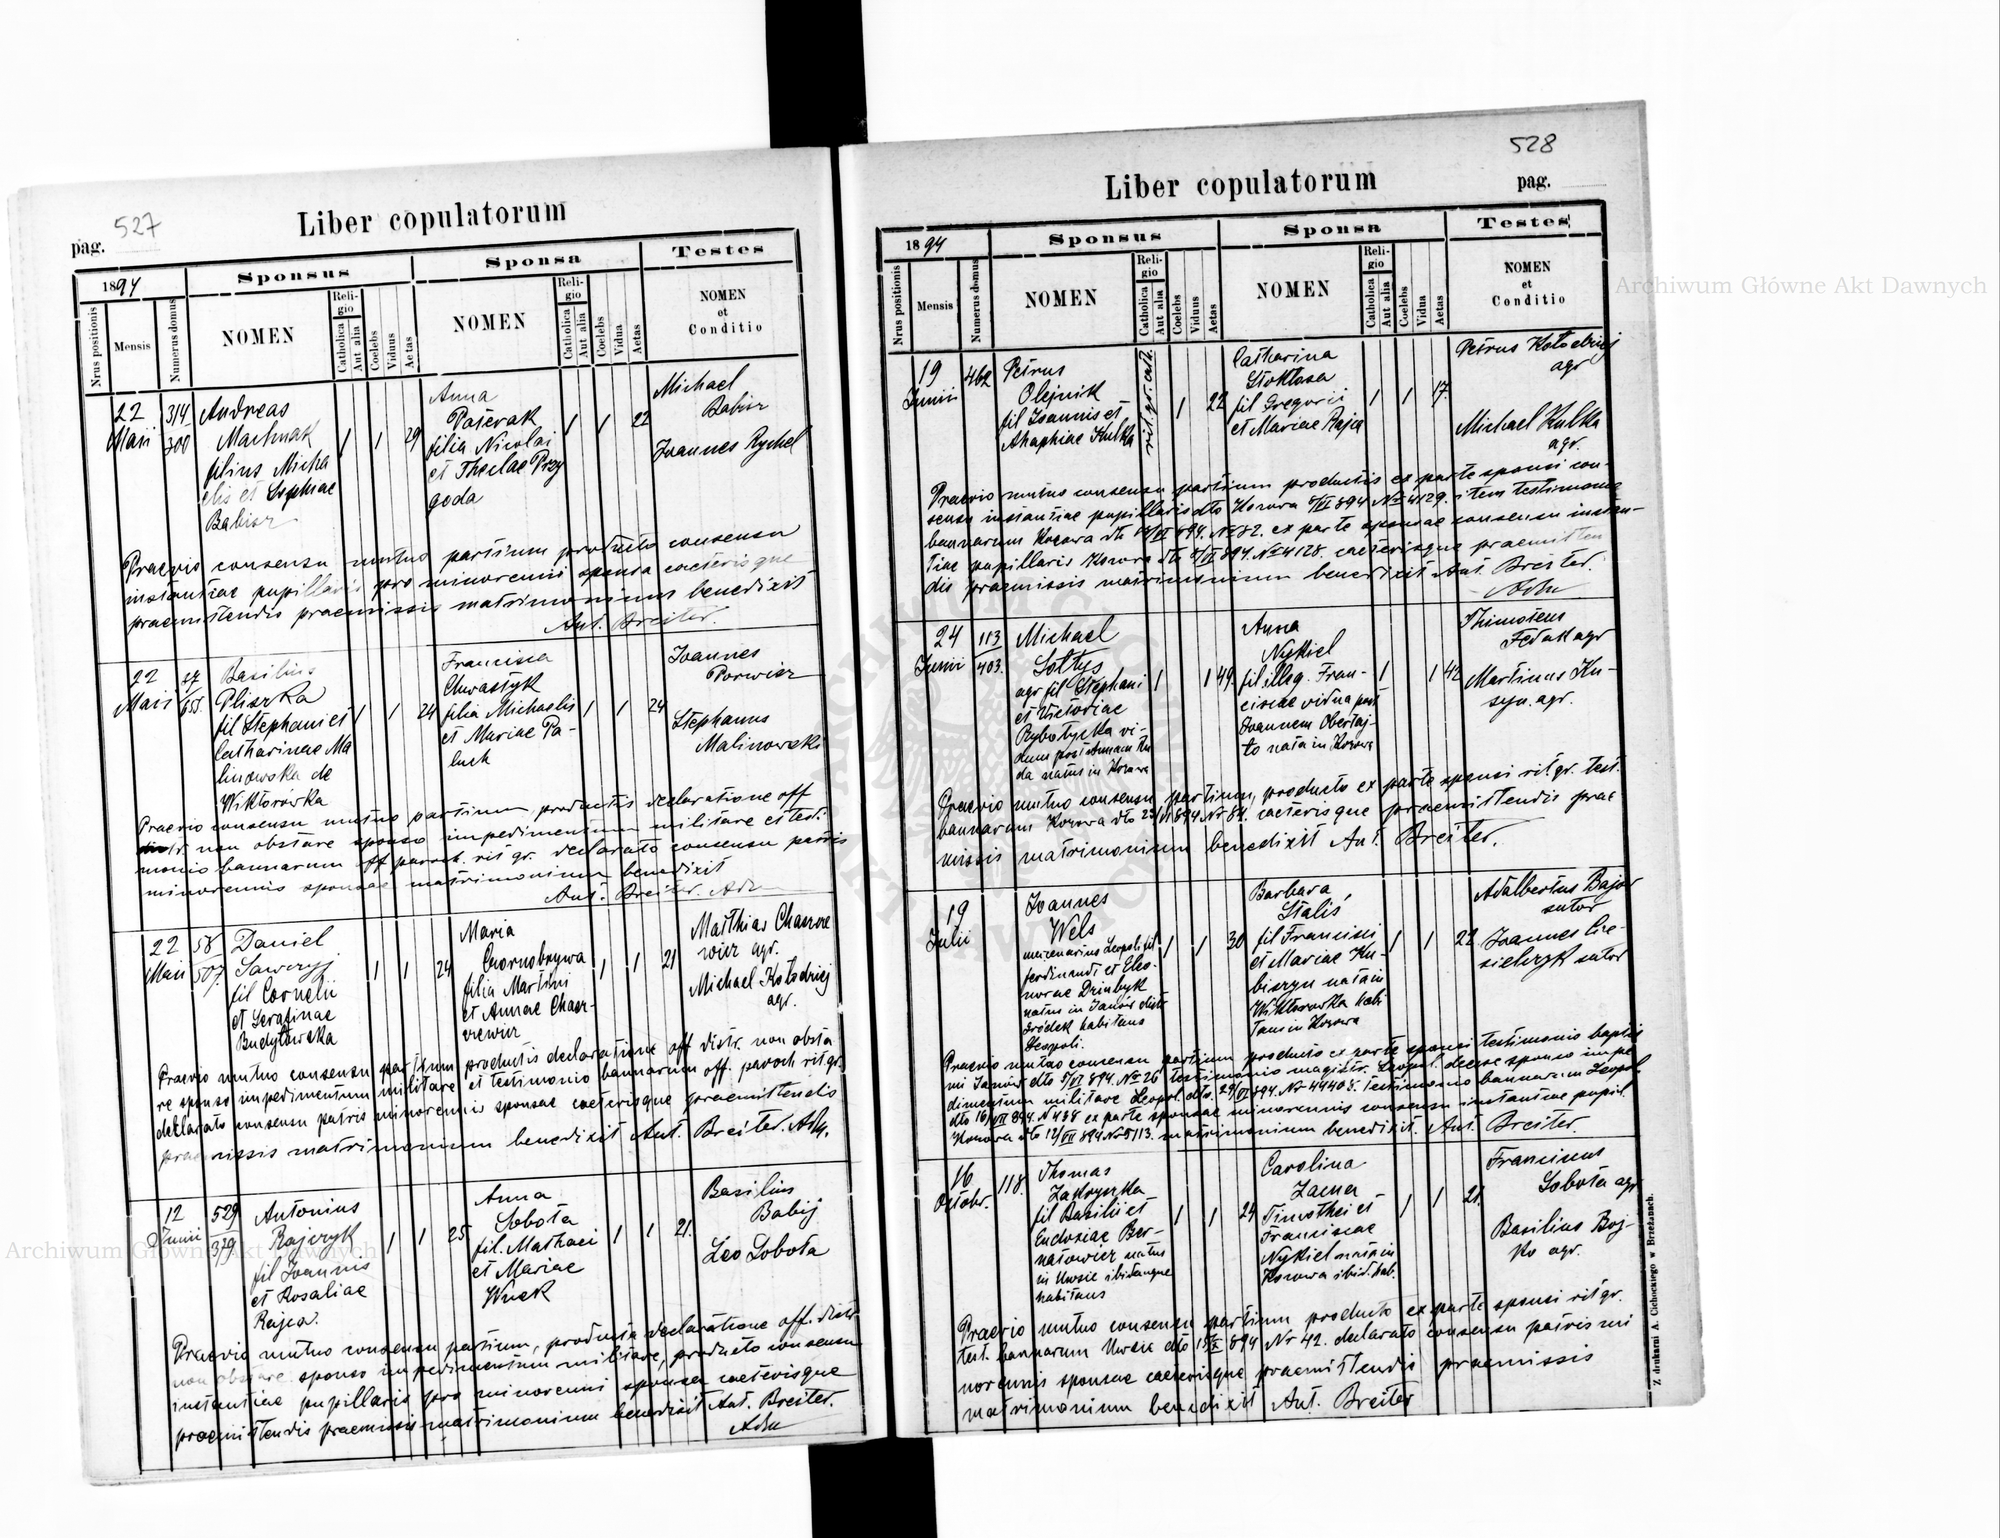 527
pag.
Liber copulatorum
1894
Sponsus
Sponsa
Testes
Nrus positionis
Mensis
Numerus domus
NOMEN
Religio
Catholica
Aut alia
Coelebs
Viduus
Aetas
NOMEN
Religio
Catholica
Aut alia
Coelebs
Vidua
Aetas
NOMEN
et
Conditio
22 Maii
314
300
Andreas
Machnak
filius Micha
elis et Sophiae
Babisz
1 1 29
Anna
Pasierak
filia Nicolai
et Theclae Przy
goda
1 1 22
Michael
Babisz
Joannes Rychel
Praevio consensu mutuo partium producto consensu
instantiae pupillaris pro minorenni sponsa caeterisque
praemittendis praemissis matrimonium benedixit
Ant. Breiter.
22 Maii
27
655.
Basilius
Pliszka
fil Stephani et
Catharinae Ma
linowska de
Wiktorówka
1 1 24
Francisca
Chwastyk
filia Michaelis
et Mariae Pa-
luch
1 1 24
Joannes
Porwisz
Stephanus
Malinowski
Praevio consensu mutuo partium, productis declaratione off
distr. non obstare sponso impedimentum militare et testi
monio bannarum off paroch. rit gr. declarato consensu patris
minorennis sponsae matrimonium benedixit
Ant. Breiter. Adm
22 Maii
58
507.
Daniel
Sawczyj
fil Cornelii
et Serafinae
Budyłowska
1 1 24
Maria
Czornobrywa
filia Martini
et Annae Chaer-
wewicz
1 1 21
Matthias
agr.
Michael Kołodziej
agr.
Praevio mutuo consensu partium productis declaratione off distr. non obsta
re sponso impedimentum militare et testimonio bannarum off. paroch rit gr.
declarato consensu patris minorennis sponsae caeterisque praemittendis
praemissis matrimonium benedixit Ant. Breiter. Adm.
12 Junii
529
379
Antonius
Rajczyk
fil Joannis
et Rosaliae
Rajca.
1 1 25
Anna
Sobota
fil. Mathaei
et Mariae
Wnek
1 1 21.
Basilius
Babij
Leo Sobota
Praevio mutuo consensu partium, producta declaratione off. distr
non obstare sponso impedimentum militare, producto consensu
instantiae pupillaris pro minorenni sponsa caeterisque
praemittendis praemissis matrimonium benedixit Ant. Breiter.
Adm
528
Liber copulatorum
pag.
1894
Sponsus
Sponsa
Testes
Nrus positionis
Mensis
Numerus domus
NOMEN
Religio
Catholica
Aut alia
Coelebs
Viduus
Aetas
NOMEN
Religio
Catholica
Aut alia
Coelebs
Vidua
Aetas
NOMEN
et
Conditio
19 Junii
462
Petrus
Olejnik
fil Joannis et
Ahaphiae Kulka
rit. gr. cath.
1 22
Catharina
Stokłosa
fil Gregorii
et Mariae Rajca
1 1 17.
Petrus Kołodziej
agr
Michael Kulka
agr.
Praevio mutuo consensu partium productis ex parte sponsi con-
sensu instantiae pupillaris dto Kozowa 5/VI 894 No 4129. item testimonio
bannarum Kozowa dto /VI 894. No 82. ex parte sponsae consensu instan-
tiae pupillaris Kozowa dto 5/VI 894. No 4128. caeterisque praemitten
dis praemissis matrimonium benedixit Ant. Breiter.
Adm
24 Junii
113
403.
Michael
Sołtys
agr fil Stephani
et Victoriae
Rybotycka vi-
duus post Annam Ku
da natus in Kozowa
1 1 49.
Anna
Nykiel
fil illeg. Fran-
ciscae vidua post
Joannem Obertaj-
to nata in Kozowa
1 1 42
Thimoteus
Fedak agr
Martinus Ku-
syn. agr.
Praevio mutuo consensu partium, producto ex parte sponsi rit gr. test.
bannarum Kozowa dto 23/VI 894. Nr 84. caeterisque praemittendis prae
missis matrimonium benedixit Ant. Breiter.
19
Julii
Joannes
Wels
mercenarius Leopoli fil
Ferdinandi et Eleo-
norae Dziubyk
natus in Janów distr
Gródek habitans
Leopoli.
1 1 30
Barbara
Staliś
fil Francisci
et Mariae Ku-
biszyn nata in
Wiktorówka habi
tans in Kozowa
1 1 22
Adalbertus Bajor
sutor
Joannes Cie-
sielczyk sutor
Praevio mutuo consensu partium producto ex parte sponsi testimonio baptis
mi Janów dto 5/VI 894. No 26 testimonio magistr. Leopol. deesse sponso impe
dimentum militare Leopol. dto. 29/VI 894. Nr 44408. testimonio bannarum Leopol
dto 16/VII 894. N 438 ex parte sponsae minorennis consensu instantiae pupil.
Kozowa dto 12/VII 894 Nr 5113. matrimonium benedixit. Ant. Breiter.
16
Octobr.
118.
Thomas
Zakryszka
fil Basilii et
Eudoxiae Ber-
natowicz natus
in Uwsie ibidemque
habitans
1 1 24
Carolina
Zacna
Timothei et
Franciscae
Nykiel nata in
Kozowa ibid. hab.
1 1 21.
Franciscus
Sobota agr
Basilius Boj-
ko agr.
Praevio mutuo consensu partium producto ex parte sponsi rit gr.
test. bannarum Uwsie dto 15/X 894 Nr 42. declarato consensu patris mi
norennis sponsae caeterisque praemittendis praemissis
matrimonium benedixit Ant. Breiter
Z drukarni A. Cichockiego w Brzeżanach.
Archiwum Główne Akt Dawnych
Archiwum Główne Akt Dawnych